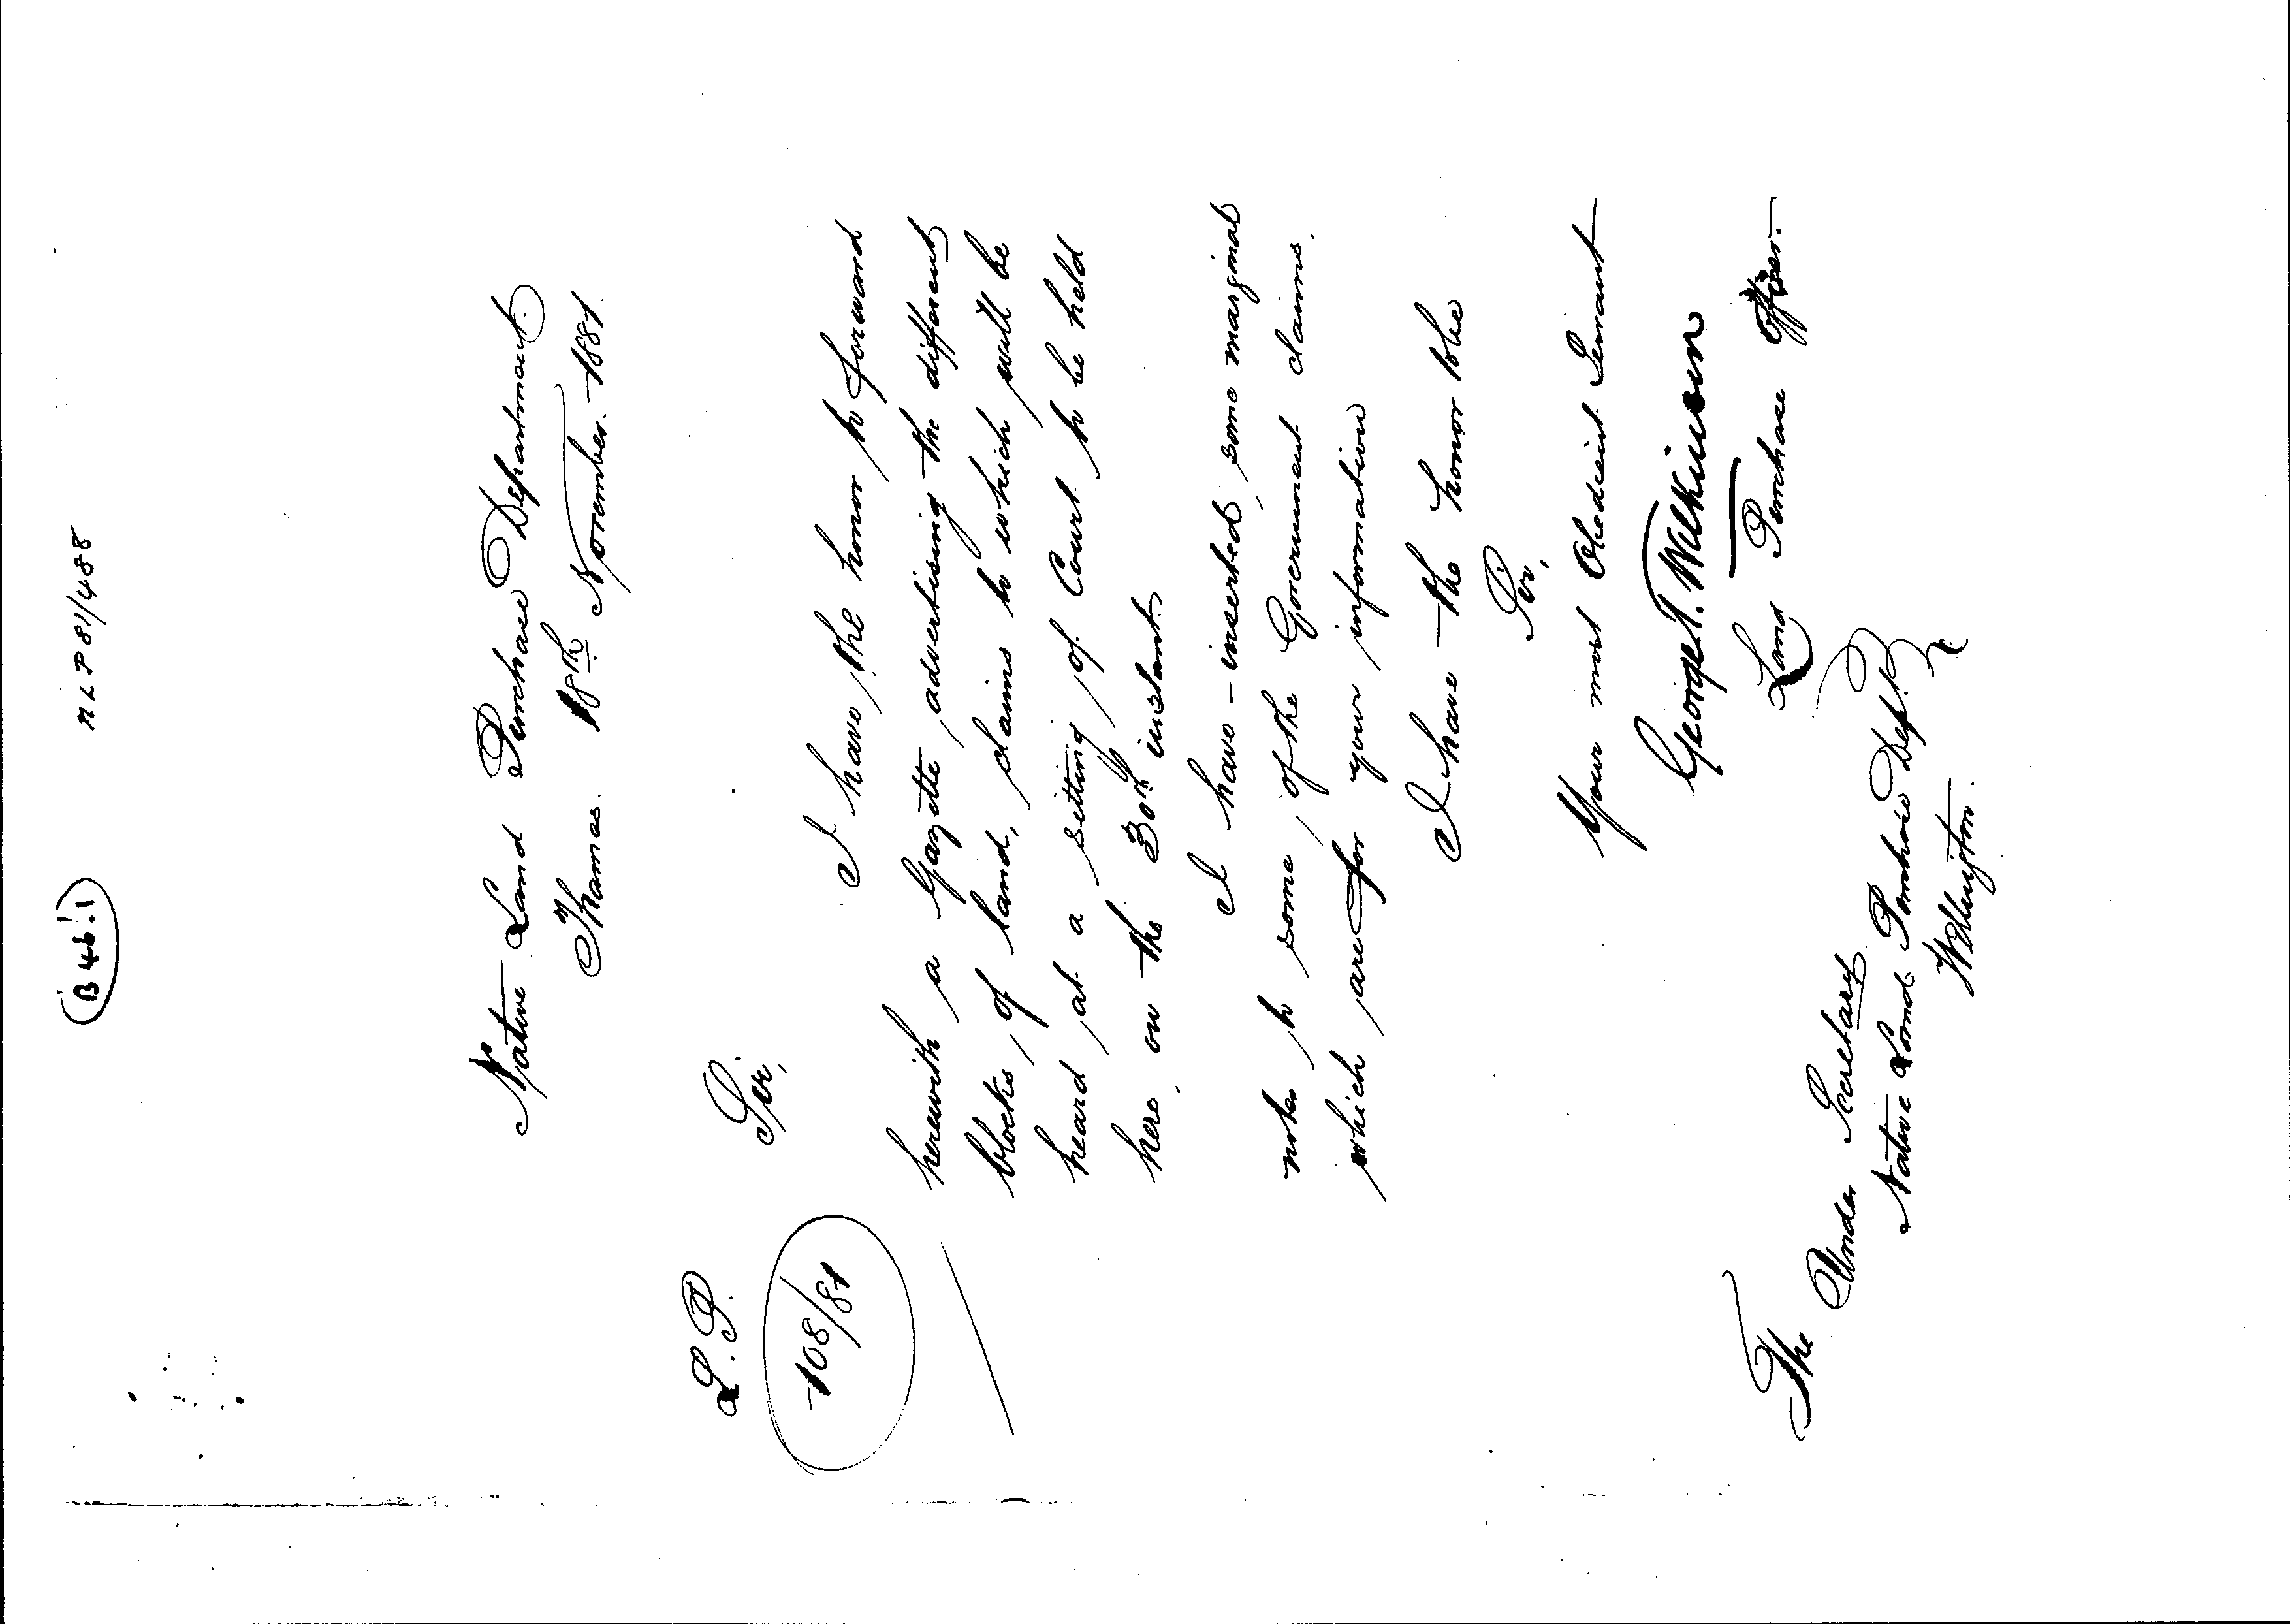 B 46.1
NLP 81/488
Native Land Purchase Department.
Thames. 18th November. 1881.
L. P.
108/81
Sir,
I have the honor to forward
herewith a Gazette advertising the different
blocks of land, claims to which will be
heard at a sitting of Court to be held
here on the 30th instant.
I have inserted some marginal
notes to some of the Government claims,
which are for your information
I have the honor to be
Sir,
Your most Obedient Servant
George T. Wilkinson
Land Purchase Officer.
The
Under Secretary
Native Land Purchase Dept.
Wellington.